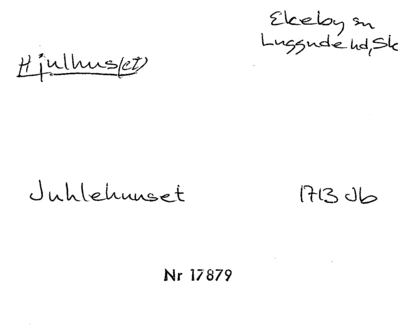 Ekeby sn
Luggude hd, Sk
Hjulhus(et)
Juhlehuuset 1713 Jb
Nr 17879